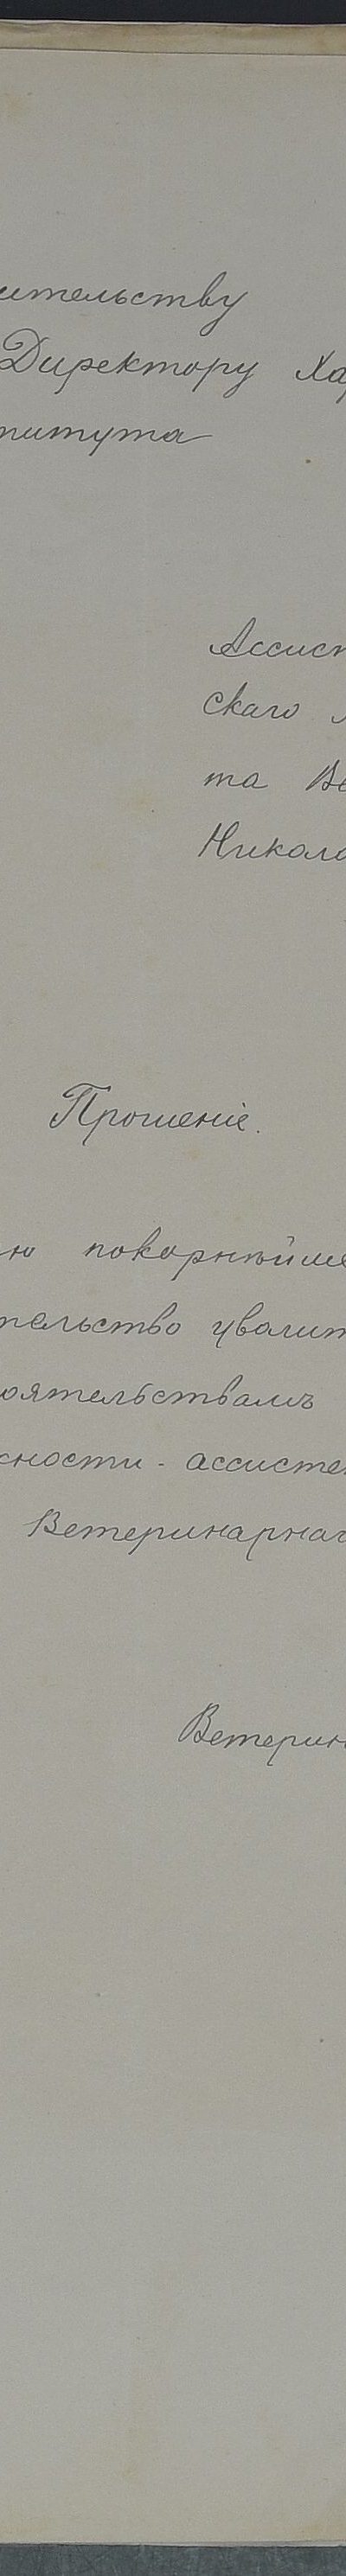 ительству
Директору Хар
титута
Ассист
скаго
та Ве
Никола
Прошеніе.
ю покорнѣйше
тельство уволит
оятельствамъ
жности - ассистен
Ветеринарнаг
Ветерин